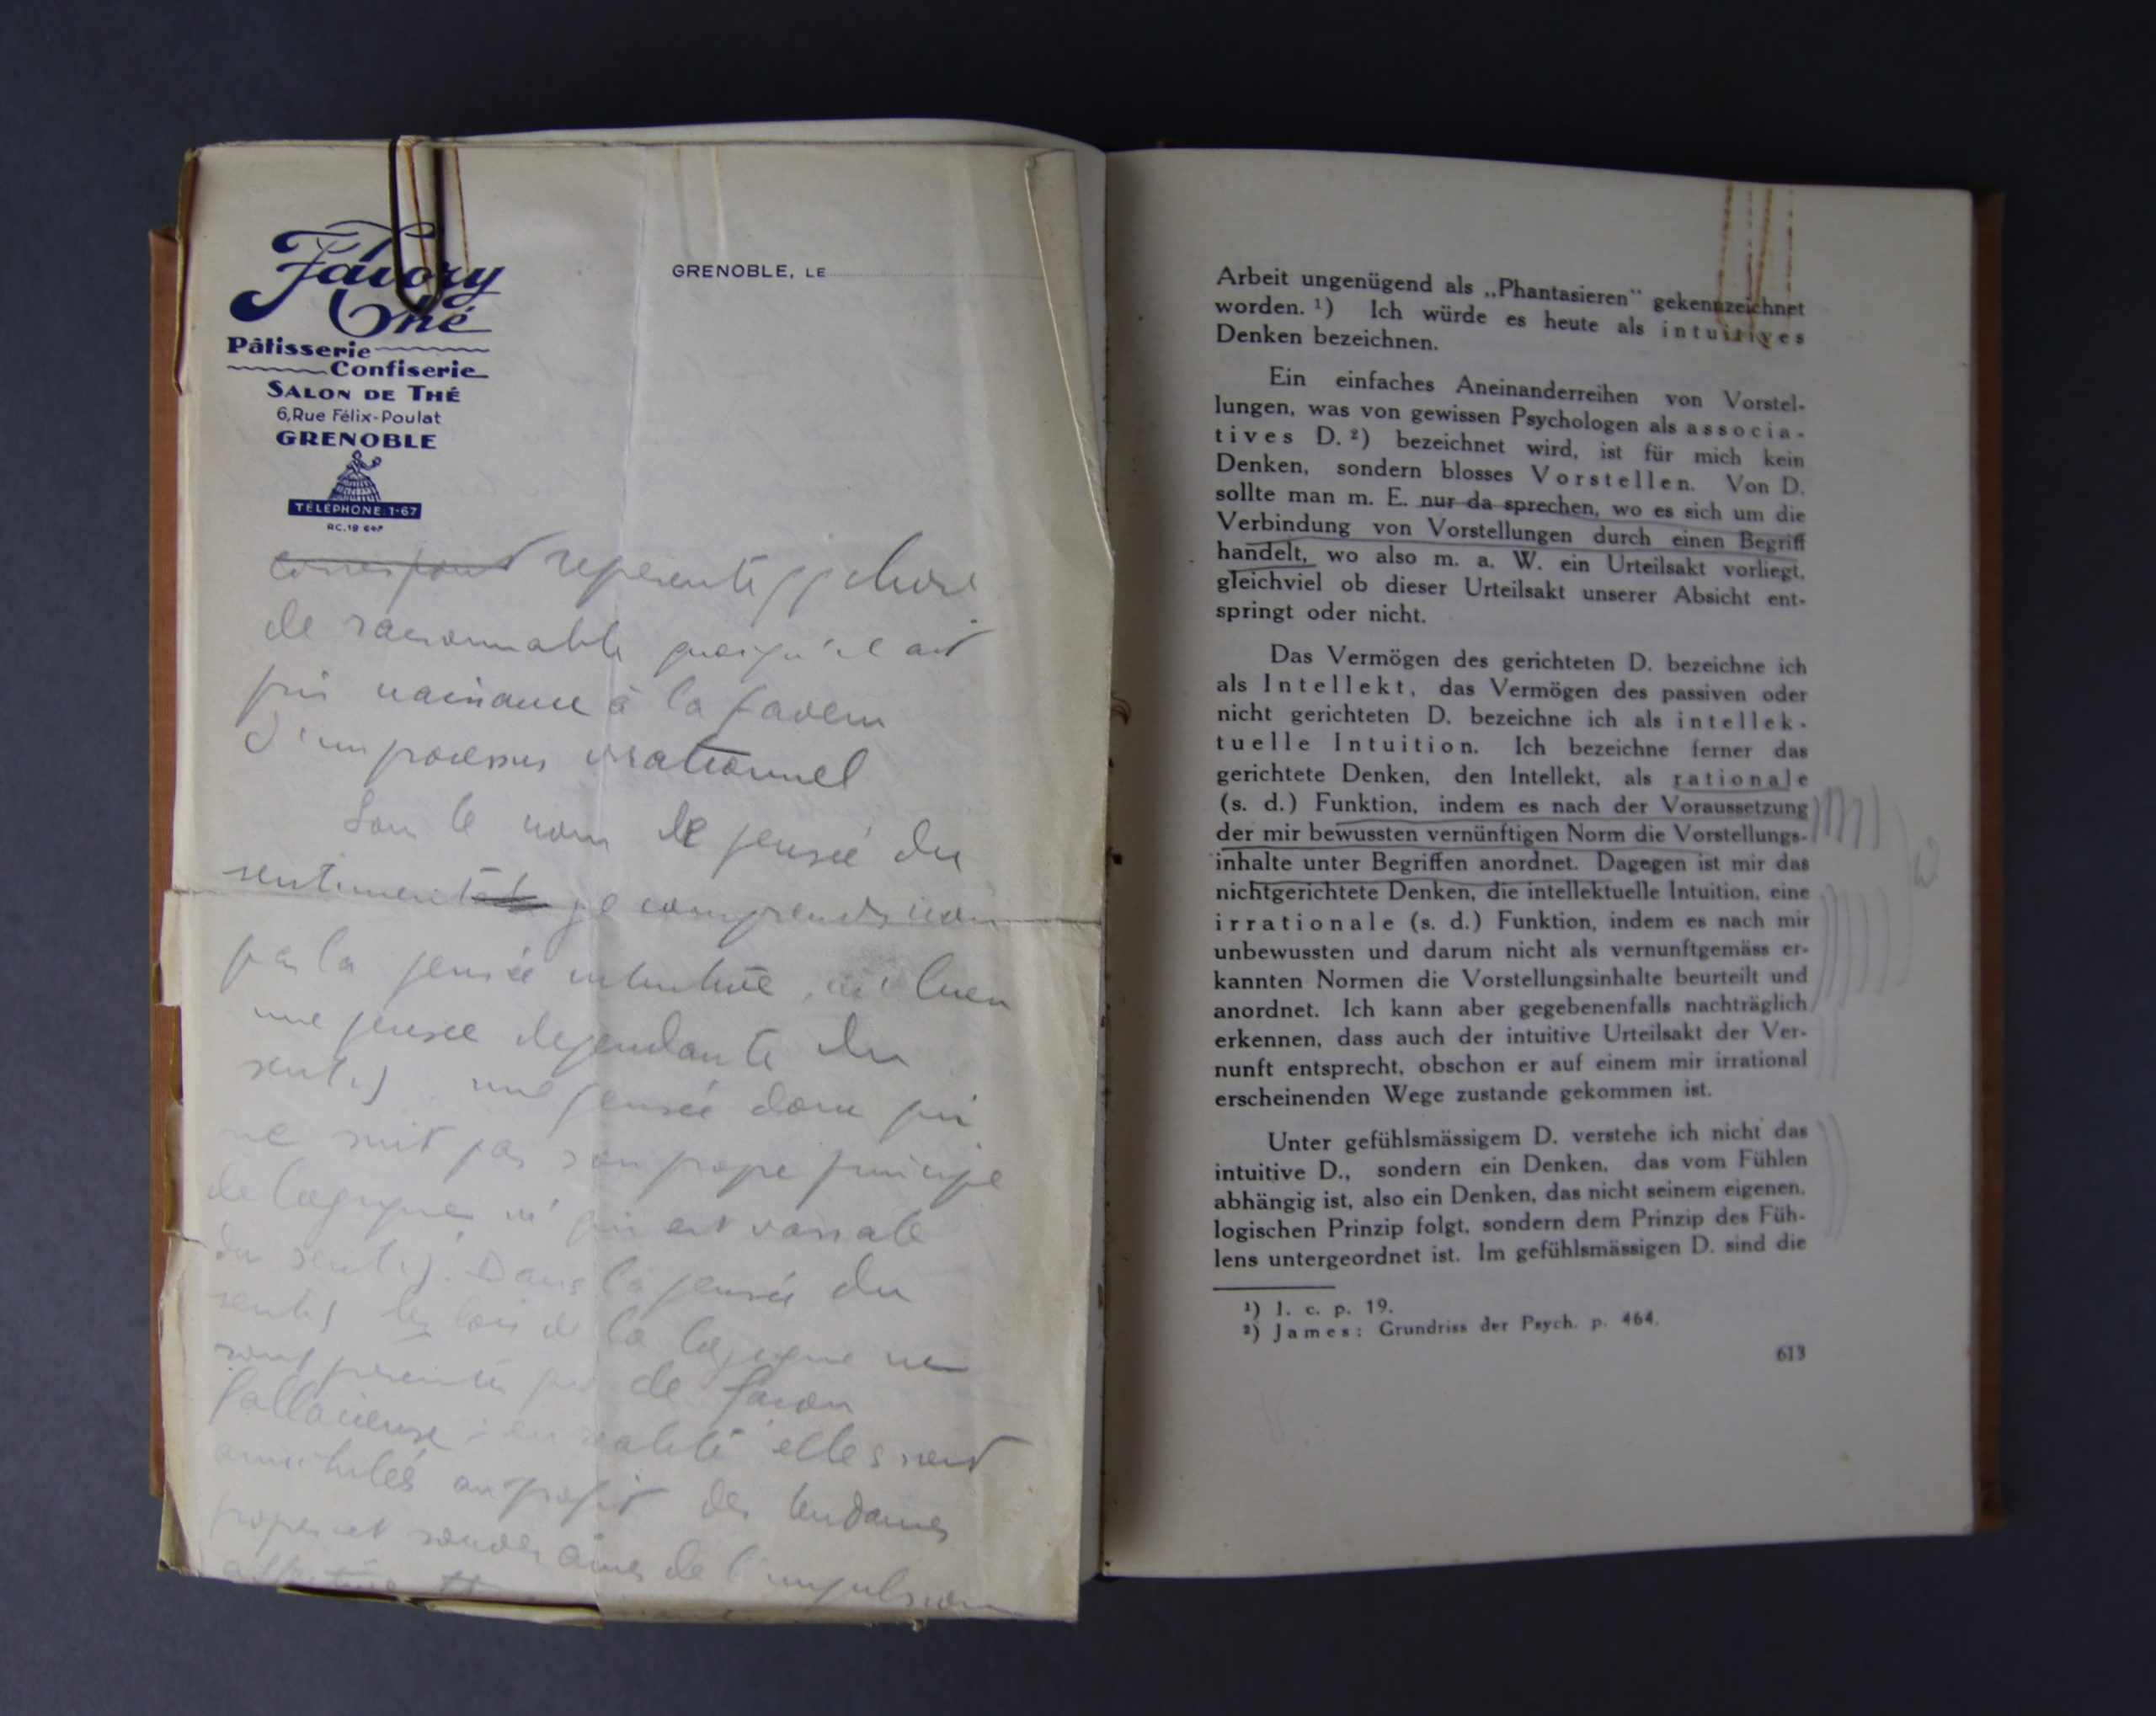 Favory
Thé
Pâtisserie
Confiserie
SALON DE THÉ
6, Rue Félix-Poulat
GRENOBLE
TÉLÉPHONE: 1-67
GRENOBLE, LE
correspond represente qq chose
de raisonnable quoiqu'il ait
pris naissance à la faveur
d'un processus irrationnel
Sous le nom de pensée du
sentiment je comprends non
pas la pensée intuitive, bien
une pensée dependante du
sentt, une pensée donc qui
ne suit pas son propre principe
de logique qui est vassale
du sentt. Dans la pensée du
sentt les lois de la logique ne
sont presentes que de façon
fallacieuse ; en realité elles sont
annihilés au profit des tendances
propres et souveraines de l'impulsion
Arbeit ungenügend als „Phantasieren" gekennzeichnet
worden. ¹) Ich würde es heute als intuitives
Denken bezeichnen.
Ein einfaches Aneinanderreihen von Vorstel-
lungen, was von gewissen Psychologen als associa-
tives D. ²) bezeichnet wird, ist für mich kein
Denken, sondern blosses Vorstellen. Von D.
sollte man m. E. nur da sprechen, wo es sich um die
Verbindung von Vorstellungen durch einen Begriff
handelt, wo also m. a. W. ein Urteilsakt vorliegt,
gleichviel ob dieser Urteilsakt unserer Absicht ent-
springt oder nicht.
Das Vermögen des gerichteten D. bezeichne ich
als Intellekt, das Vermögen des passiven oder
nicht gerichteten D. bezeichne ich als intellek-
tuelle Intuition. Ich bezeichne ferner das
gerichtete Denken, den Intellekt, als rationale
(s. d.) Funktion, indem es nach der Voraussetzung
der mir bewussten vernünftigen Norm die Vorstellungs-
inhalte unter Begriffen anordnet. Dagegen ist mir das
nichtgerichtete Denken, die intellektuelle Intuition, eine
irrationale (s. d.) Funktion, indem es nach mir
unbewussten und darum nicht als vernunftgemäss er-
kannten Normen die Vorstellungsinhalte beurteilt und
anordnet. Ich kann aber gegebenenfalls nachträglich
erkennen, dass auch der intuitive Urteilsakt der Ver-
nunft entspricht, obschon er auf einem mir irrational
erscheinenden Wege zustande gekommen ist.
Unter gefühlsmässigem D. verstehe ich nicht das
intuitive D., sondern ein Denken, das vom Fühlen
abhängig ist, also ein Denken, das nicht seinem eigenen,
logischen Prinzip folgt, sondern dem Prinzip des Füh-
lens untergeordnet ist. Im gefühlsmässigen D. sind die
¹) l. c. p. 19.
²) James: Grundriss der Psych. p. 464.
613